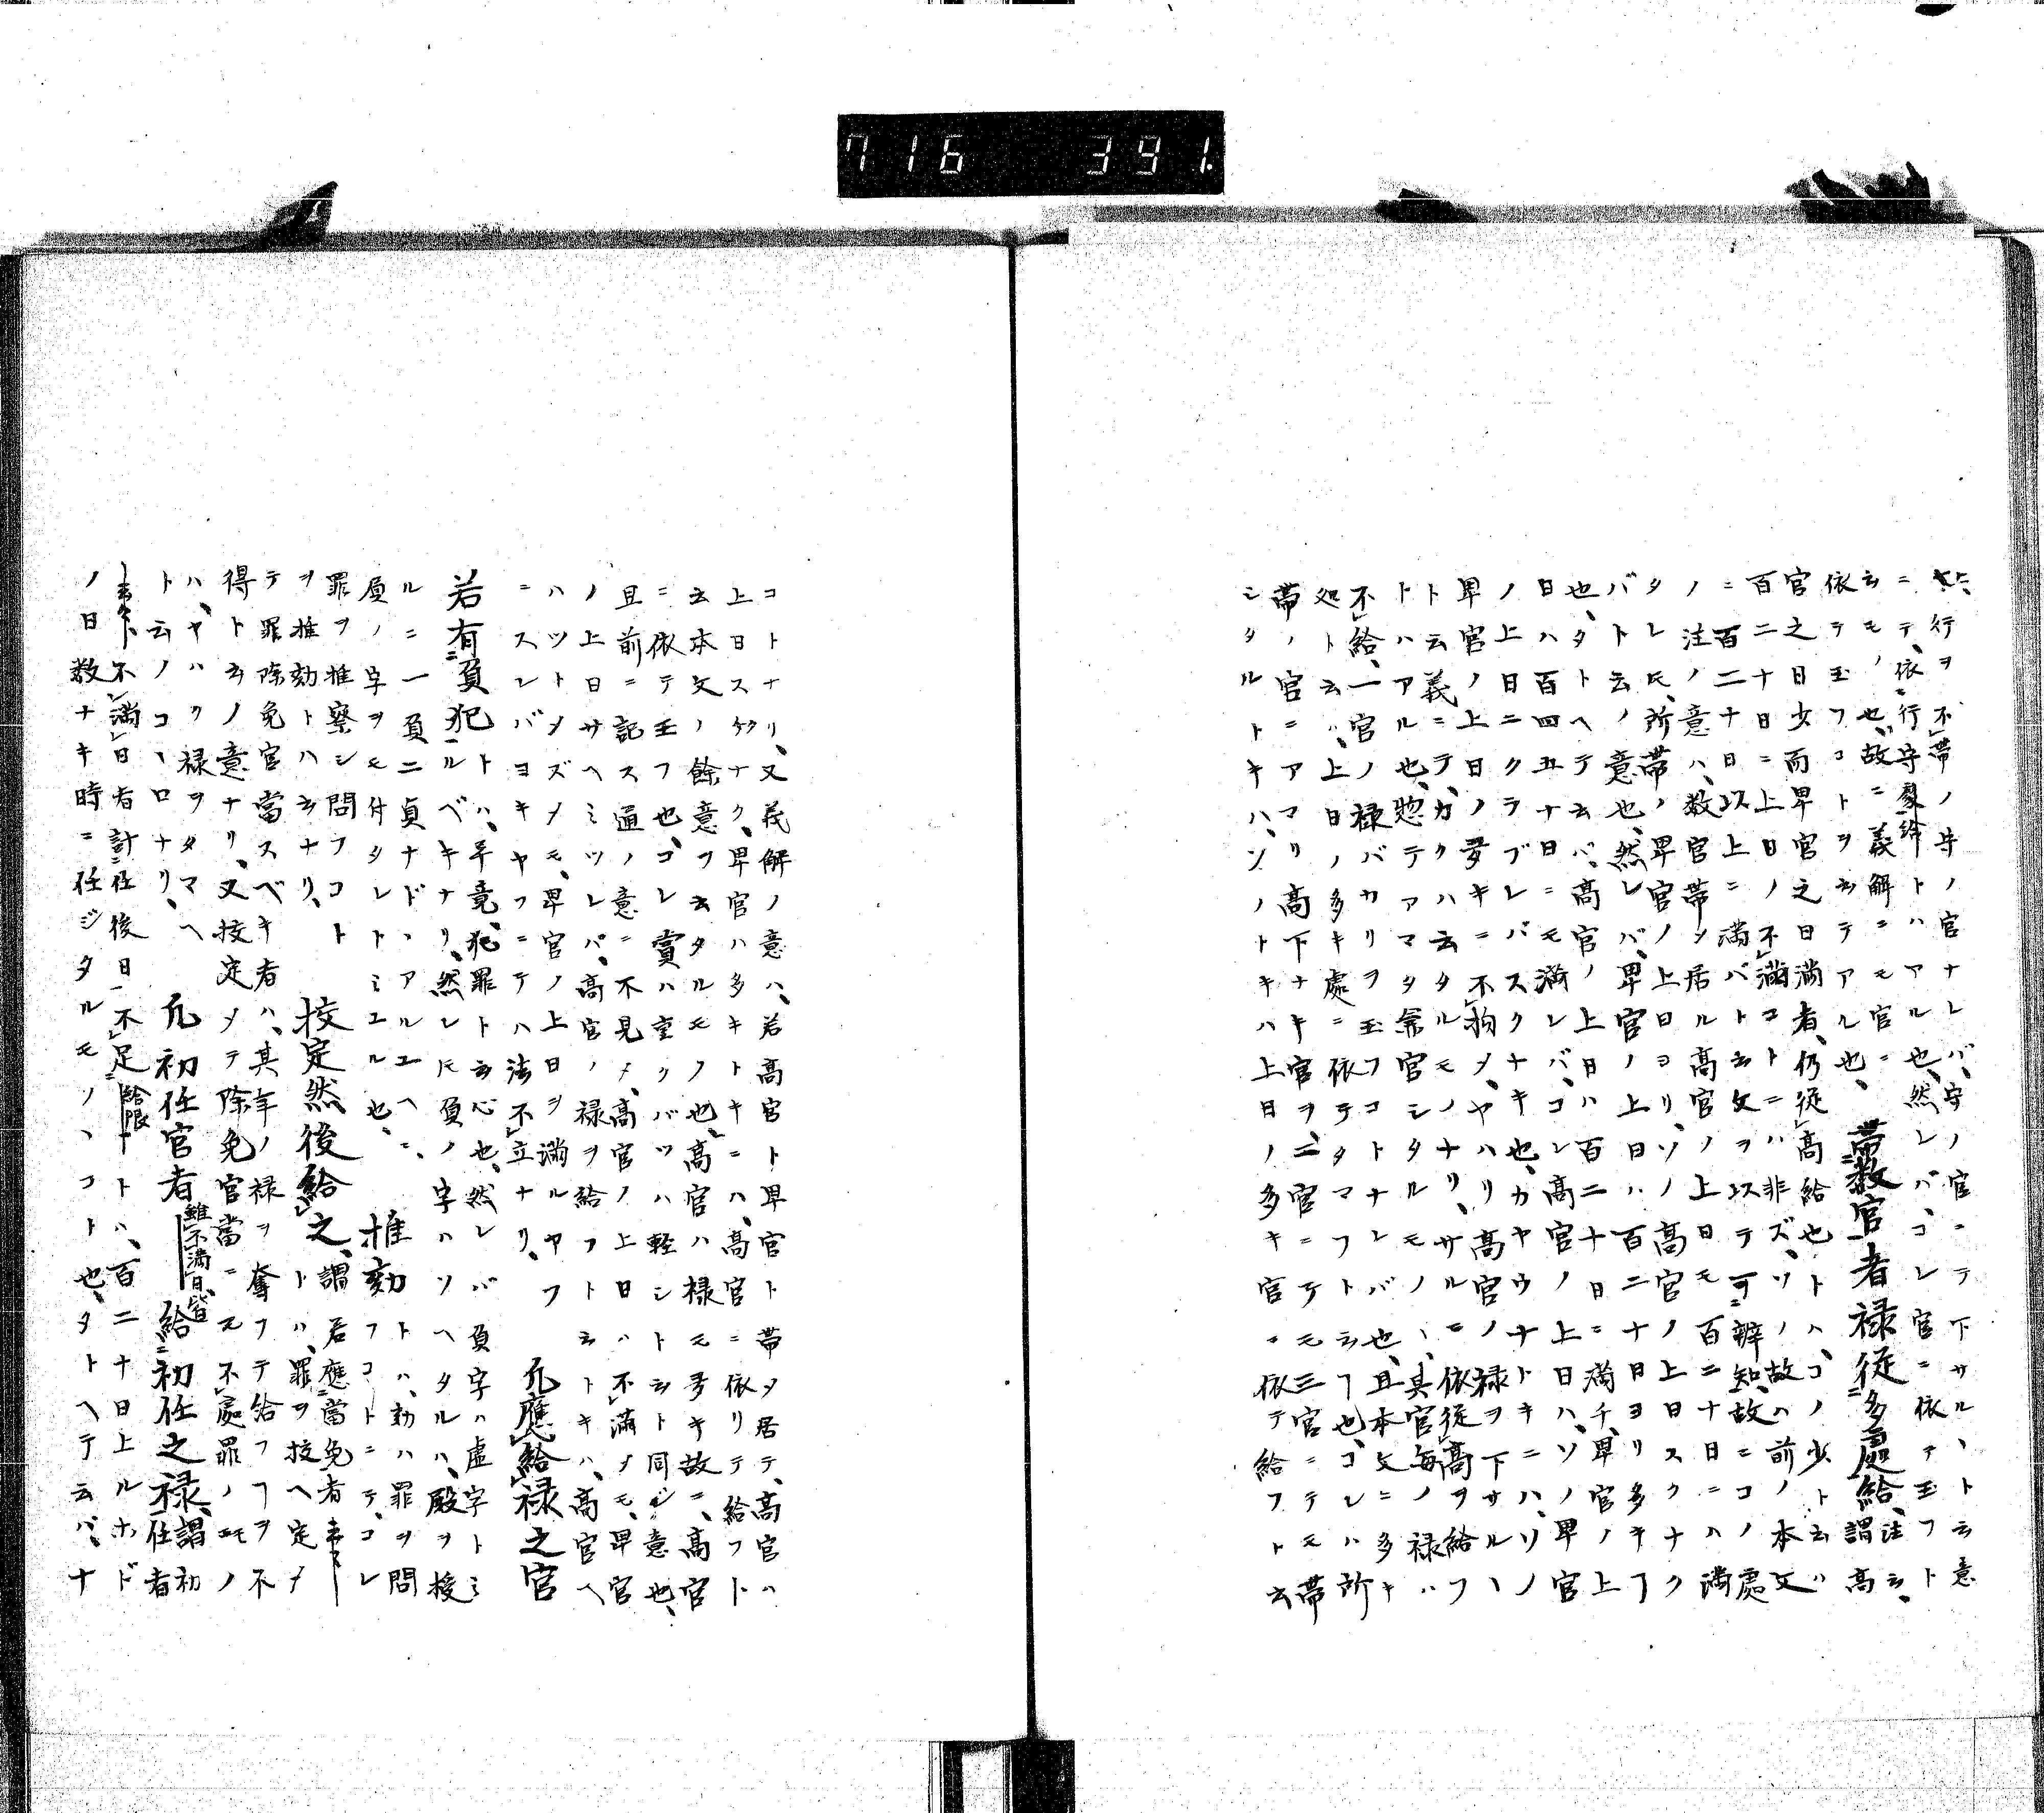 行ヲ不帯ノ守ノ官ナレバ、守ノ官ニテ下サルヽト云意
ニテ、依行守處給トハアル也、然レバ、コレ官ニ依テ玉フト
云モノ也、故ニ義解ニモ官ニ
依テ玉フコトヲ云テアル也、帯数官者禄従多處給、注云、謂高
官之日少而卑官之日満者、仍従高給也トハ、コノ少ト云ハ
百二十日ニ上日ノ不満コトニハ非ズ、ソノ故ハ前ノ本文
ニ百二十日以上満バト云文ヲ以テ可辨知、故ニコノ處
ノ注ノ意ハ、数官ニ帯シ居ル高官ノ上日モ百二十日ニハ満
タレ𪜈、所帯ノ卑官ノ上日ヨリ、ソノ高官ノ上日スクナク
バト云ノ意也、然レバ、卑官ノ上日ハ百二十日ヨリ多キヿ
也、タトヘテ云バ、高官ノ上日ハ百二十日ニ満チ、卑官ノ上
日ハ百四五十日ニモ満レバ、コレ高官ノ上日ハ、ソノ卑官
ノ上日ニクラブレバスクナキ也、カヤウナトキニハ、ソノ
卑官ノ上日ノ多キニ不拘メ、ヤハリ高官ノ禄ヲ下サルヽ
ト云義ニテ、カクハ云タルモノナリ、サルニ依従高ヲ給フ
トハアル也、惣テアマタ兼官シタルモノヽ、其官毎ノ禄ハ
不給、一官ノ禄バカリヲ玉フコトナレバ也、且本文ニ多キ
処ト云ハ、上日ノ多キ處ニ依テタマフト云ヿ也、コレハ所
帯ノ官ニアマリ高下ナキ官ヲ、二官ニテモ三官ニテモ帯
シタルトキハ、ソノトキハ上日ノ多キ官ニ依テ給フト云
コトナリ、又義解ノ意ハ、若高官ト卑官ト帯タ居テ、高官ハ
上日スクナク、卑官ハ多キトキニハ、高官ニ依リテ給フト
云本文ノ餘意ヲ云タルモノ也、高官ハ禄モ多キ故ニ、高官
ニ依テ玉フ也、コレ賞ハ重クバツハ軽シト云ト同ジ意也、
且前ニ記ス通ノ意ニ不見メ、高官ノ上日ハ不満メモ、卑官
ノ上日サヘミツレバ、高官ノ禄ヲ給フト云トキハ、高官ヘ
ハツトメズメモ、卑官ノ上日ヲ満ルヤフ
ニスレバヨキヤフニテハ法不立ナリ、凡應給禄之官
若有負犯トハ、畢竟犯罪ト云心也、然レバ負字ハ虚字トミ
ルベキナリ、然レ𪜈負ノ字ハソヘタルハ、殿ヲ授
ルニ一負二負ナドヽアルユヘニ、
負ノ字ヲモ付タレトミエル也、推劾トハ、劾ハ罪ヲ問フコトニテ、コレ
罪ヲ推察シ問フコト
ヲ推劾トハ云ナリ、挍定然後給之、謂若應當免者云々トハ、罪ヲ挍ヘ定メ
テ罪除免官當スベキ者ハ、其年ノ禄ヲ奪フテ給フヿヲ不
得ト云ノ意ナリ、又挍定メテ除免官當ニモ不處罪ノモノ
ハ、ヤハリ禄ヲタマヘ
ト云ノコヽロナリ、凡初任官者雖不満日、皆給初任之禄、謂初任者
云々不満日者計任後日不足給限トハ、百二十日上ルホド
ノ日数ナキ時ニ任ジタルモノヽコト也、タトヘテ云バ、十
716 391.